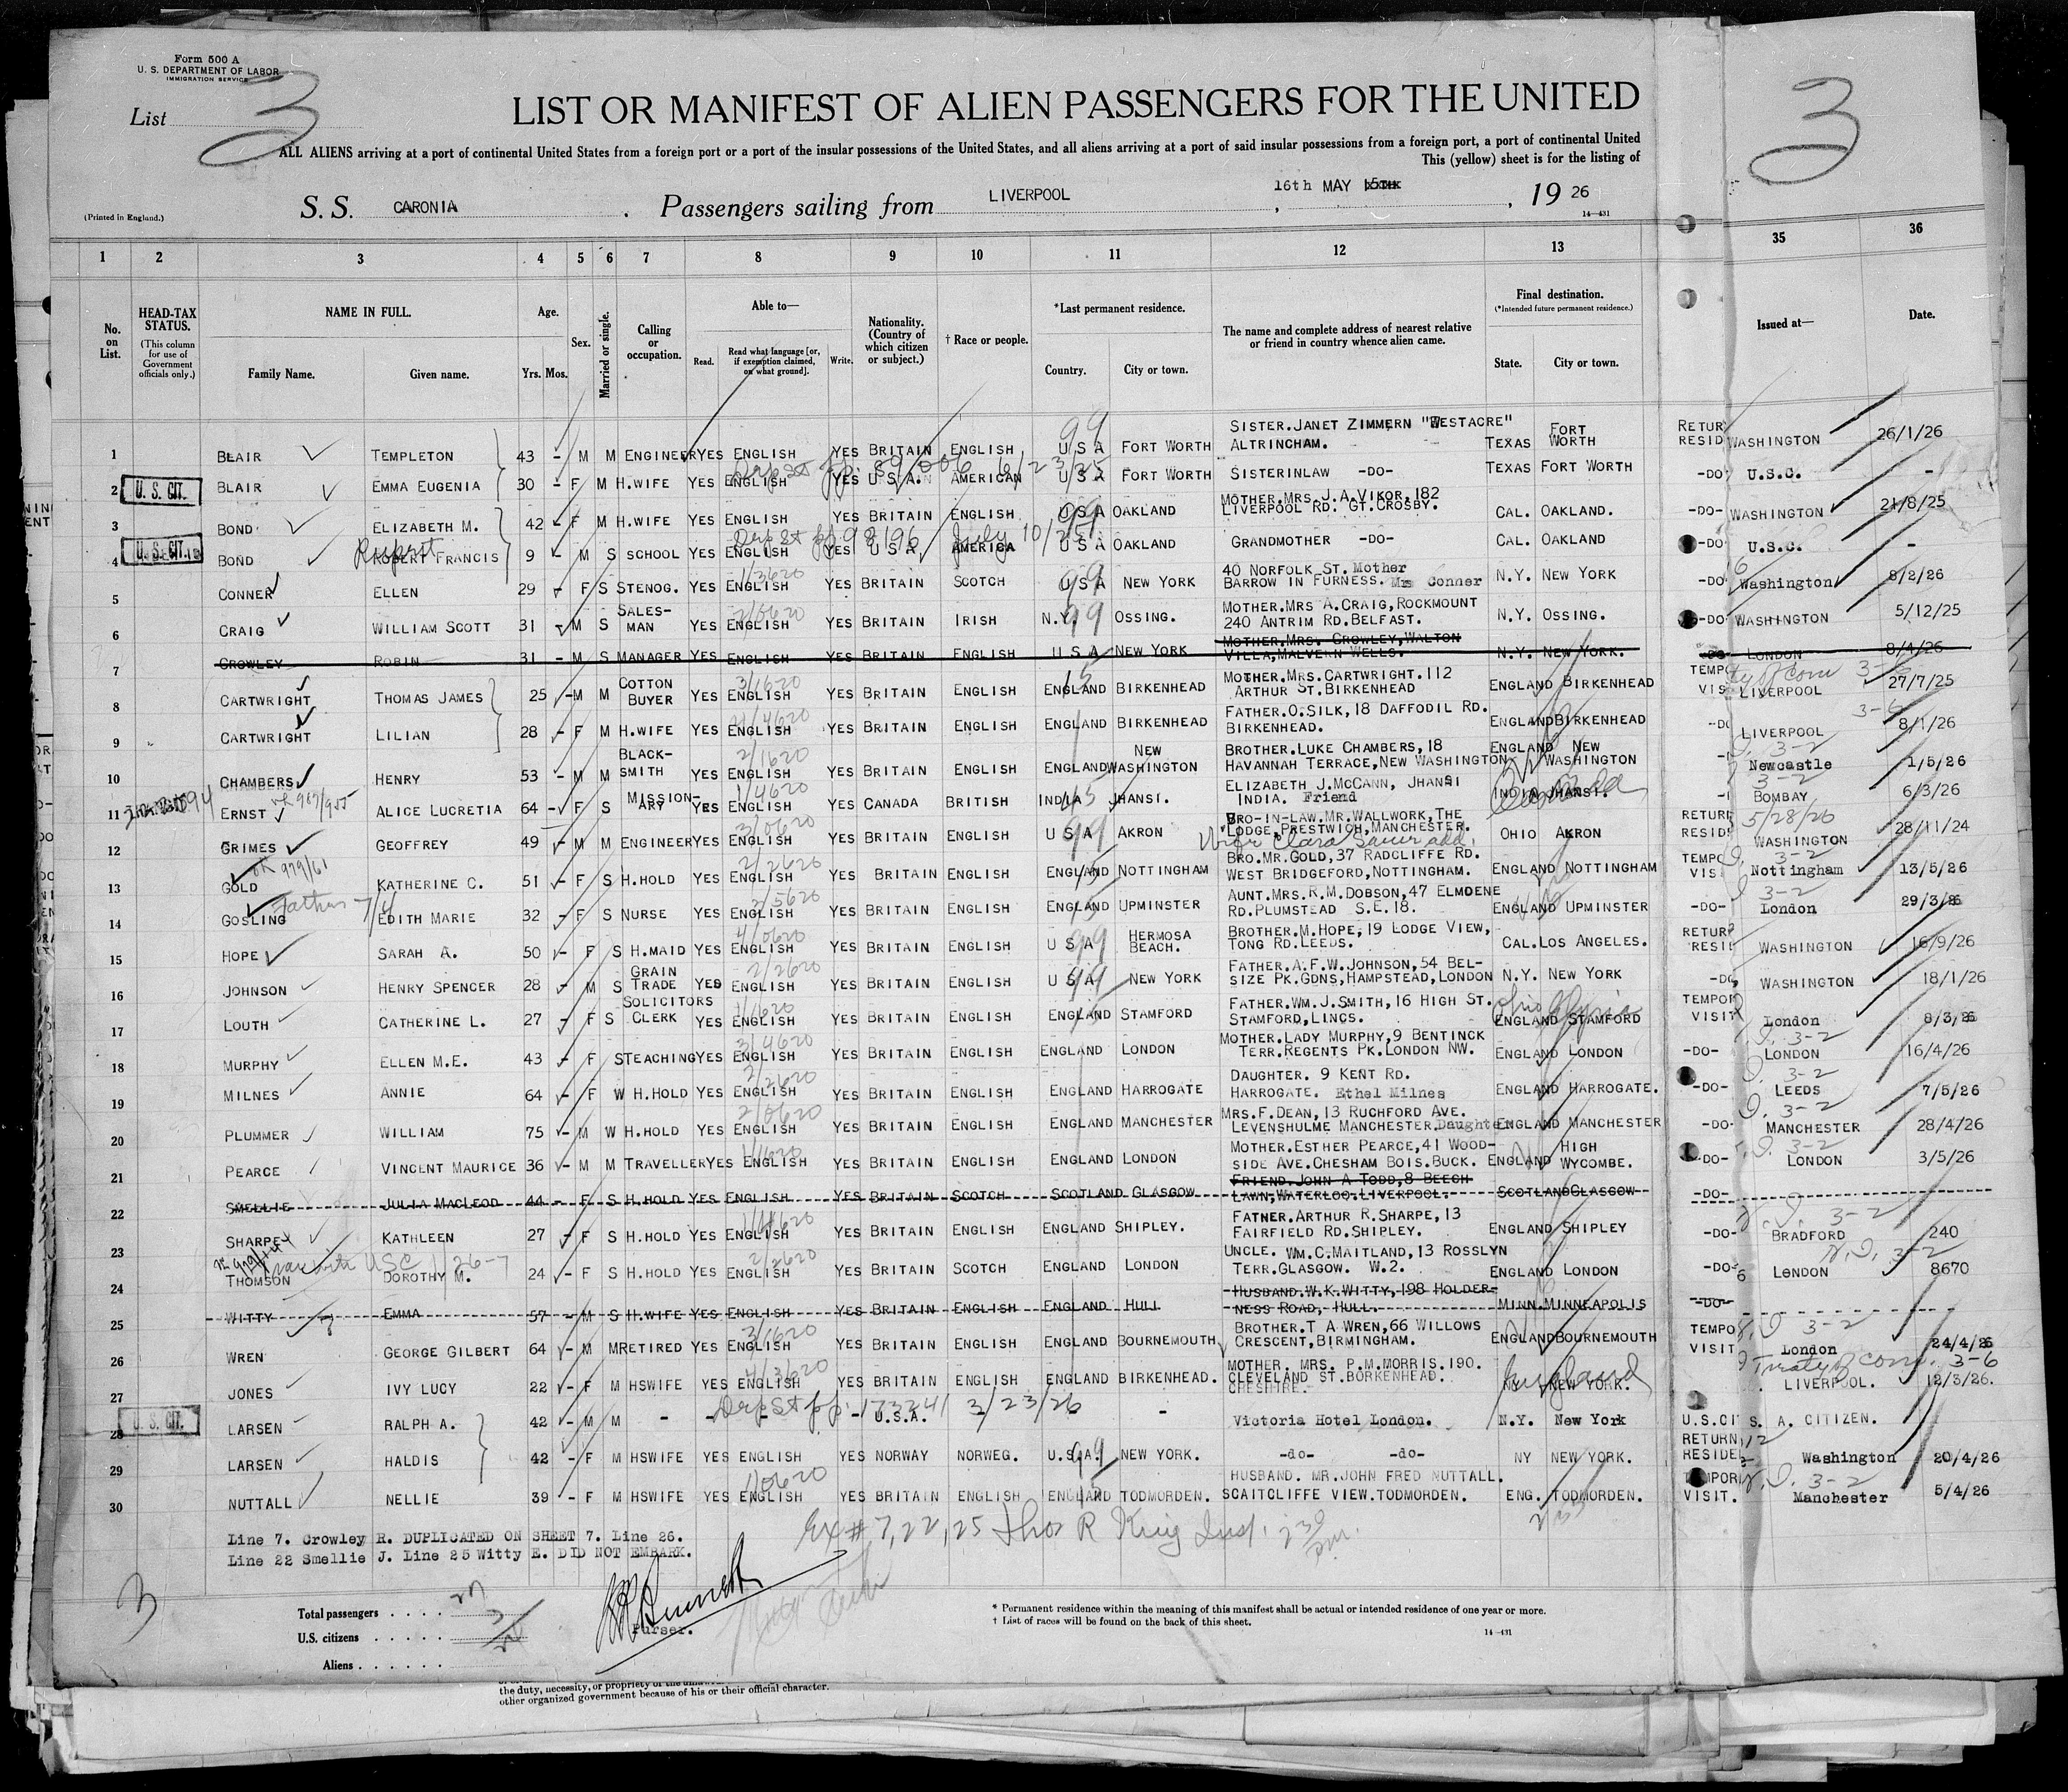 Form 500 A
U. S. DEPARTMENT OF LABOR
IMMIGRATION SERVICE
List 3
3
LIST OR MANIFEST OF ALIEN PASSENGERS FOR THE UNITED
ALL ALIENS arriving at a port of continental United States from a foreign port or a port of the insular possessions of the United States, and all aliens arriving at a port of said insular possessions from a foreign port, a port of continental United
This (yellow) sheet is for the listing of
(Printed in England.)
S. S. CARONIA . Passengers sailing from LIVERPOOL , 16th MAY 15TH , 19 26
14—431
1 2 3 4 5 6 7 8 9 10 11 12 13 35 36
No. on List.
HEAD-TAX STATUS.
(This column for use of Government officials only.)
NAME IN FULL.
Family Name. Given name.
Age.
Yrs. Mos.
Sex.
Married or single.
Calling or occupation.
Able to—
Read. Read what language [or, if exemption claimed, on what ground]. Write.
Nationality. (Country of which citizen or subject.)
† Race or people.
*Last permanent residence.
Country. City or town.
The name and complete address of nearest relative or friend in country whence alien came.
Final destination.
(*Intended future permanent residence.)
State. City or town.
Issued at—
Date.
1 BLAIR TEMPLETON 43 - M M ENGINEER YES ENGLISH YES BRITAIN ENGLISH 99 U S A FORT WORTH SISTER.JANET ZIMMERN "WESTACRE" ALTRINCHAM. TEXAS FORT WORTH RETUR RESID WASHINGTON 26/1/26
Dep St pp. 89006 6/23/25
2 U. S. CIT. BLAIR EMMA EUGENIA 30 - F M H.WIFE YES ENGLISH YES U S A. AMERICAN U S A FORT WORTH SISTERINLAW -DO- TEXAS FORT WORTH -DO U.S.C. -
3 BOND ELIZABETH M. 42 - F M H.WIFE YES ENGLISH YES BRITAIN ENGLISH 99 U S A OAKLAND MOTHER.MRS.J.A.VIKOR.182 LIVERPOOL RD. GT.CROSBY. CAL. OAKLAND. -DO- WASHINGTON 21/8/25
Dep St pp 98196 July 10/25
4 U. S. CIT. BOND Rupert ROBERT FRANCIS 9 - M S SCHOOL YES ENGLISH YES U S A AMERICA U S A OAKLAND GRANDMOTHER -DO- CAL. OAKLAND -DO U.S.C. -
5 CONNER ELLEN 29 - F S STENOG. YES ENGLISH 1/3620 YES BRITAIN SCOTCH 99 U S A NEW YORK 40 NORFOLK ST. Mother BARROW IN FURNESS. Mrs Conner N.Y. NEW YORK -DO Washington 8/2/26
6 CRAIG WILLIAM SCOTT 31 - M S SALES-MAN YES ENGLISH 2/0620 YES BRITAIN IRISH N.Y. 99 OSSING. MOTHER.MRS A.CRAIG,ROCKMOUNT 240 ANTRIM RD.BELFAST. N.Y. OSSING. -DO WASHINGTON 5/12/25
7 CROWLEY ROBIN 31 - M S MANAGER YES ENGLISH YES BRITAIN ENGLISH U S A NEW YORK MOTHER.MRS. CROWLEY,WALTON VILLA,MALVERN WELLS. N.Y. NEW YORK. -DO LONDON 8/4/26
8 CARTWRIGHT THOMAS JAMES 25 - M M COTTON BUYER YES ENGLISH 3/1620 YES BRITAIN ENGLISH 15 ENGLAND BIRKENHEAD MOTHER.MRS.CARTWRIGHT.112 ARTHUR ST.BIRKENHEAD ENGLAND BIRKENHEAD TEMPO VIS LIVERPOOL 27/7/25
9 CARTWRIGHT LILIAN 28 - F M H.WIFE YES ENGLISH 4/4620 YES BRITAIN ENGLISH ENGLAND BIRKENHEAD FATHER.O.SILK,18 DAFFODIL RD. BIRKENHEAD. ENGLAND BIRKENHEAD -DO LIVERPOOL 3-6 8/1/26
10 CHAMBERS HENRY 53 - M M BLACK-SMITH YES ENGLISH 2/1620 YES BRITAIN ENGLISH ENGLAND NEW WASHINGTON BROTHER.LUKE CHAMBERS,18 HAVANNAH TERRACE,NEW WASHINGTON ENGLAND NEW WASHINGTON 3-2 Newcastle 1/5/26
11 ERNST ALICE LUCRETIA 64 - F S MISSION-ARY YES ENGLISH 1/4620 YES CANADA BRITISH INDIA JHANSI. ELIZABETH J.MCCANN, JHANSI INDIA. Friend INDIA JHANSI. Canada 3-2 BOMBAY 6/3/26
12 GRIMES GEOFFREY 49 - M M ENGINEER YES ENGLISH 3/0620 YES BRITAIN ENGLISH U S A 99 AKRON BRO-IN-LAW.MR.WALLWORK,THE LODGE,PRESTWICH,MANCHESTER. Wife Clara Same add. OHIO AKRON RETUR RESID 5/28/26 WASHINGTON 28/11/24
13 GOLD KATHERINE C. 51 - F S H.HOLD YES ENGLISH 2/2620 YES BRITAIN ENGLISH ENGLAND NOTTINGHAM BRO.MR.GOLD,37 RADCLIFFE RD. WEST BRIDGEFORD,NOTTINGHAM. ENGLAND NOTTINGHAM TEMPO VIS 3-2 Nottingham 13/5/26
14 GOSLING EDITH MARIE 32 - F S NURSE YES ENGLISH 2/5620 YES BRITAIN ENGLISH ENGLAND UPMINSTER AUNT.MRS.R.M.DOBSON,47 ELMDENE RD.PLUMSTEAD S.E.18. ENGLAND UPMINSTER -DO- 3-2 London 29/3/26
15 HOPE SARAH A. 50 - F S H.MAID YES ENGLISH 4/0620 YES BRITAIN ENGLISH U S A 99 HERMOSA BEACH. BROTHER.M.HOPE,19 LODGE VIEW, TONG RD.LEEDS. CAL. LOS ANGELES. RETUR RESI WASHINGTON 16/9/26
16 JOHNSON HENRY SPENCER 28 - M S GRAIN TRADE YES ENGLISH 2/2620 YES BRITAIN ENGLISH U S A 99 NEW YORK FATHER.A.F.W.JOHNSON,54 BEL-SIZE PK.GDNS,HAMPSTEAD,LONDON N.Y. NEW YORK -DO WASHINGTON 18/1/26
17 LOUTH CATHERINE L. 27 - F S SOLICITORS CLERK YES ENGLISH 1/1620 YES BRITAIN ENGLISH ENGLAND STAMFORD FATHER.WM.J.SMITH,16 HIGH ST. STAMFORD,LINCS. ENGLAND STAMFORD Ohio Elyria TEMPOR VISIT London 8/3/26
18 MURPHY ELLEN M.E. 43 - F S TEACHING YES ENGLISH 3/4620 YES BRITAIN ENGLISH ENGLAND LONDON MOTHER.LADY MURPHY,9 BENTINCK TERR.REGENTS PK.LONDON NW. ENGLAND LONDON -DO- 3-2 LONDON 16/4/26
19 MILNES ANNIE 64 - F W H.HOLD YES ENGLISH 2/2620 YES BRITAIN ENGLISH ENGLAND HARROGATE DAUGHTER. 9 KENT RD. HARROGATE. Ethel Milnes ENGLAND HARROGATE. -DO- 3-2 LEEDS 7/5/26
20 PLUMMER WILLIAM 75 - M W H.HOLD YES ENGLISH 2/0620 YES BRITAIN ENGLISH ENGLAND MANCHESTER MRS.F.DEAN,13 RUCHFORD AVE. LEVENSHULME MANCHESTER.Daughter ENGLAND MANCHESTER -DO- 3-2 MANCHESTER 28/4/26
21 PEARCE VINCENT MAURICE 36 - M M TRAVELLER YES ENGLISH 1/1620 YES BRITAIN ENGLISH ENGLAND LONDON MOTHER.ESTHER PEARCE,41 WOOD-SIDE AVE.CHESHAM BOIS.BUCK. ENGLAND HIGH WYCOMBE. -DO- 3-2 LONDON 3/5/26
22 SMELLIE JULIA MACLEOD 44 - F S H.HOLD YES ENGLISH YES BRITAIN SCOTCH SCOTLAND GLASGOW FRIEND.JOHN A TODD,8 BEECH LAWN,WATERLOO.LIVERPOOL. SCOTLAND GLASGOW -DO-
23 SHARPE KATHLEEN 27 - F S H.HOLD YES ENGLISH 1/4620 YES BRITAIN ENGLISH ENGLAND SHIPLEY. FATHER.ARTHUR R.SHARPE,13 FAIRFIELD RD.SHIPLEY. ENGLAND SHIPLEY -DO- 3-2 BRADFORD 240
24 THOMSON DOROTHY M. 24 - F S H.HOLD YES ENGLISH 2/2620 YES BRITAIN SCOTCH ENGLAND LONDON UNCLE. WM.C.MAITLAND,13 ROSSLYN TERR.GLASGOW. W.2. ENGLAND LONDON -DO- 3-2 LONDON 8670
25 WITTY EMMA 57 - M S H.WIFE YES ENGLISH YES BRITAIN ENGLISH ENGLAND HULL HUSBAND.W.K.WITTY,198 HOLDER-NESS ROAD, HULL. MINN. MINNEAPOLIS -DO-
26 WREN GEORGE GILBERT 64 - M M RETIRED YES ENGLISH 3/1620 YES BRITAIN ENGLISH ENGLAND BOURNEMOUTH BROTHER.T A WREN,66 WILLOWS CRESCENT,BIRMINGHAM. ENGLAND BOURNEMOUTH TEMPO VISIT 3-2 London 24/4/26
27 JONES IVY LUCY 22 - F M HSWIFE YES ENGLISH 4/3620 YES BRITAIN ENGLISH ENGLAND BIRKENHEAD. MOTHER. MRS. P.M.MORRIS.190. CLEVELAND ST.BORKENHEAD. CHESHIRE. NY NEW YORK. England Treaty of Com. 3-6 LIVERPOOL. 12/3/26.
Dep St pp. 173241 3/23/26
28 U. S. CIT. LARSEN RALPH A. 42 - M M - - - - U.S.A. - - Victoria Hotel London. N.Y. New York U.S.CI S. A. CITIZEN.
29 LARSEN HALDIS 42 - F M HSWIFE YES ENGLISH YES NORWAY NORWEG. U.S.A. 99 NEW YORK. -do- -do- NY NEW YORK. RETURN RESIDE Washington 20/4/26
30 NUTTALL NELLIE 39 - F M HSWIFE YES ENGLISH 1/0620 YES BRITAIN ENGLISH ENGLAND TODMORDEN. HUSBAND. MR.JOHN FRED NUTTALL. SCAITCLIFFE VIEW.TODMORDEN. ENG. TODMORDEN. TEMPOR VISIT. 3-2 Manchester 5/4/26
Line 7. Crowley R. DUPLICATED ON SHEET 7. Line 26.
Line 22 Smellie J. Line 25 Witty E. DID NOT EMBARK.
Ex # 7, 22, 25 Thos R King Insp.
3
Total passengers . . . .
U.S. citizens . . . . . 3
Aliens . . . . . .
Purser.
* Permanent residence within the meaning of this manifest shall be actual or intended residence of one year or more.
† List of races will be found on the back of this sheet.
14—431
the duty, necessity, or propriety of the
other organized government because of his or their official character.